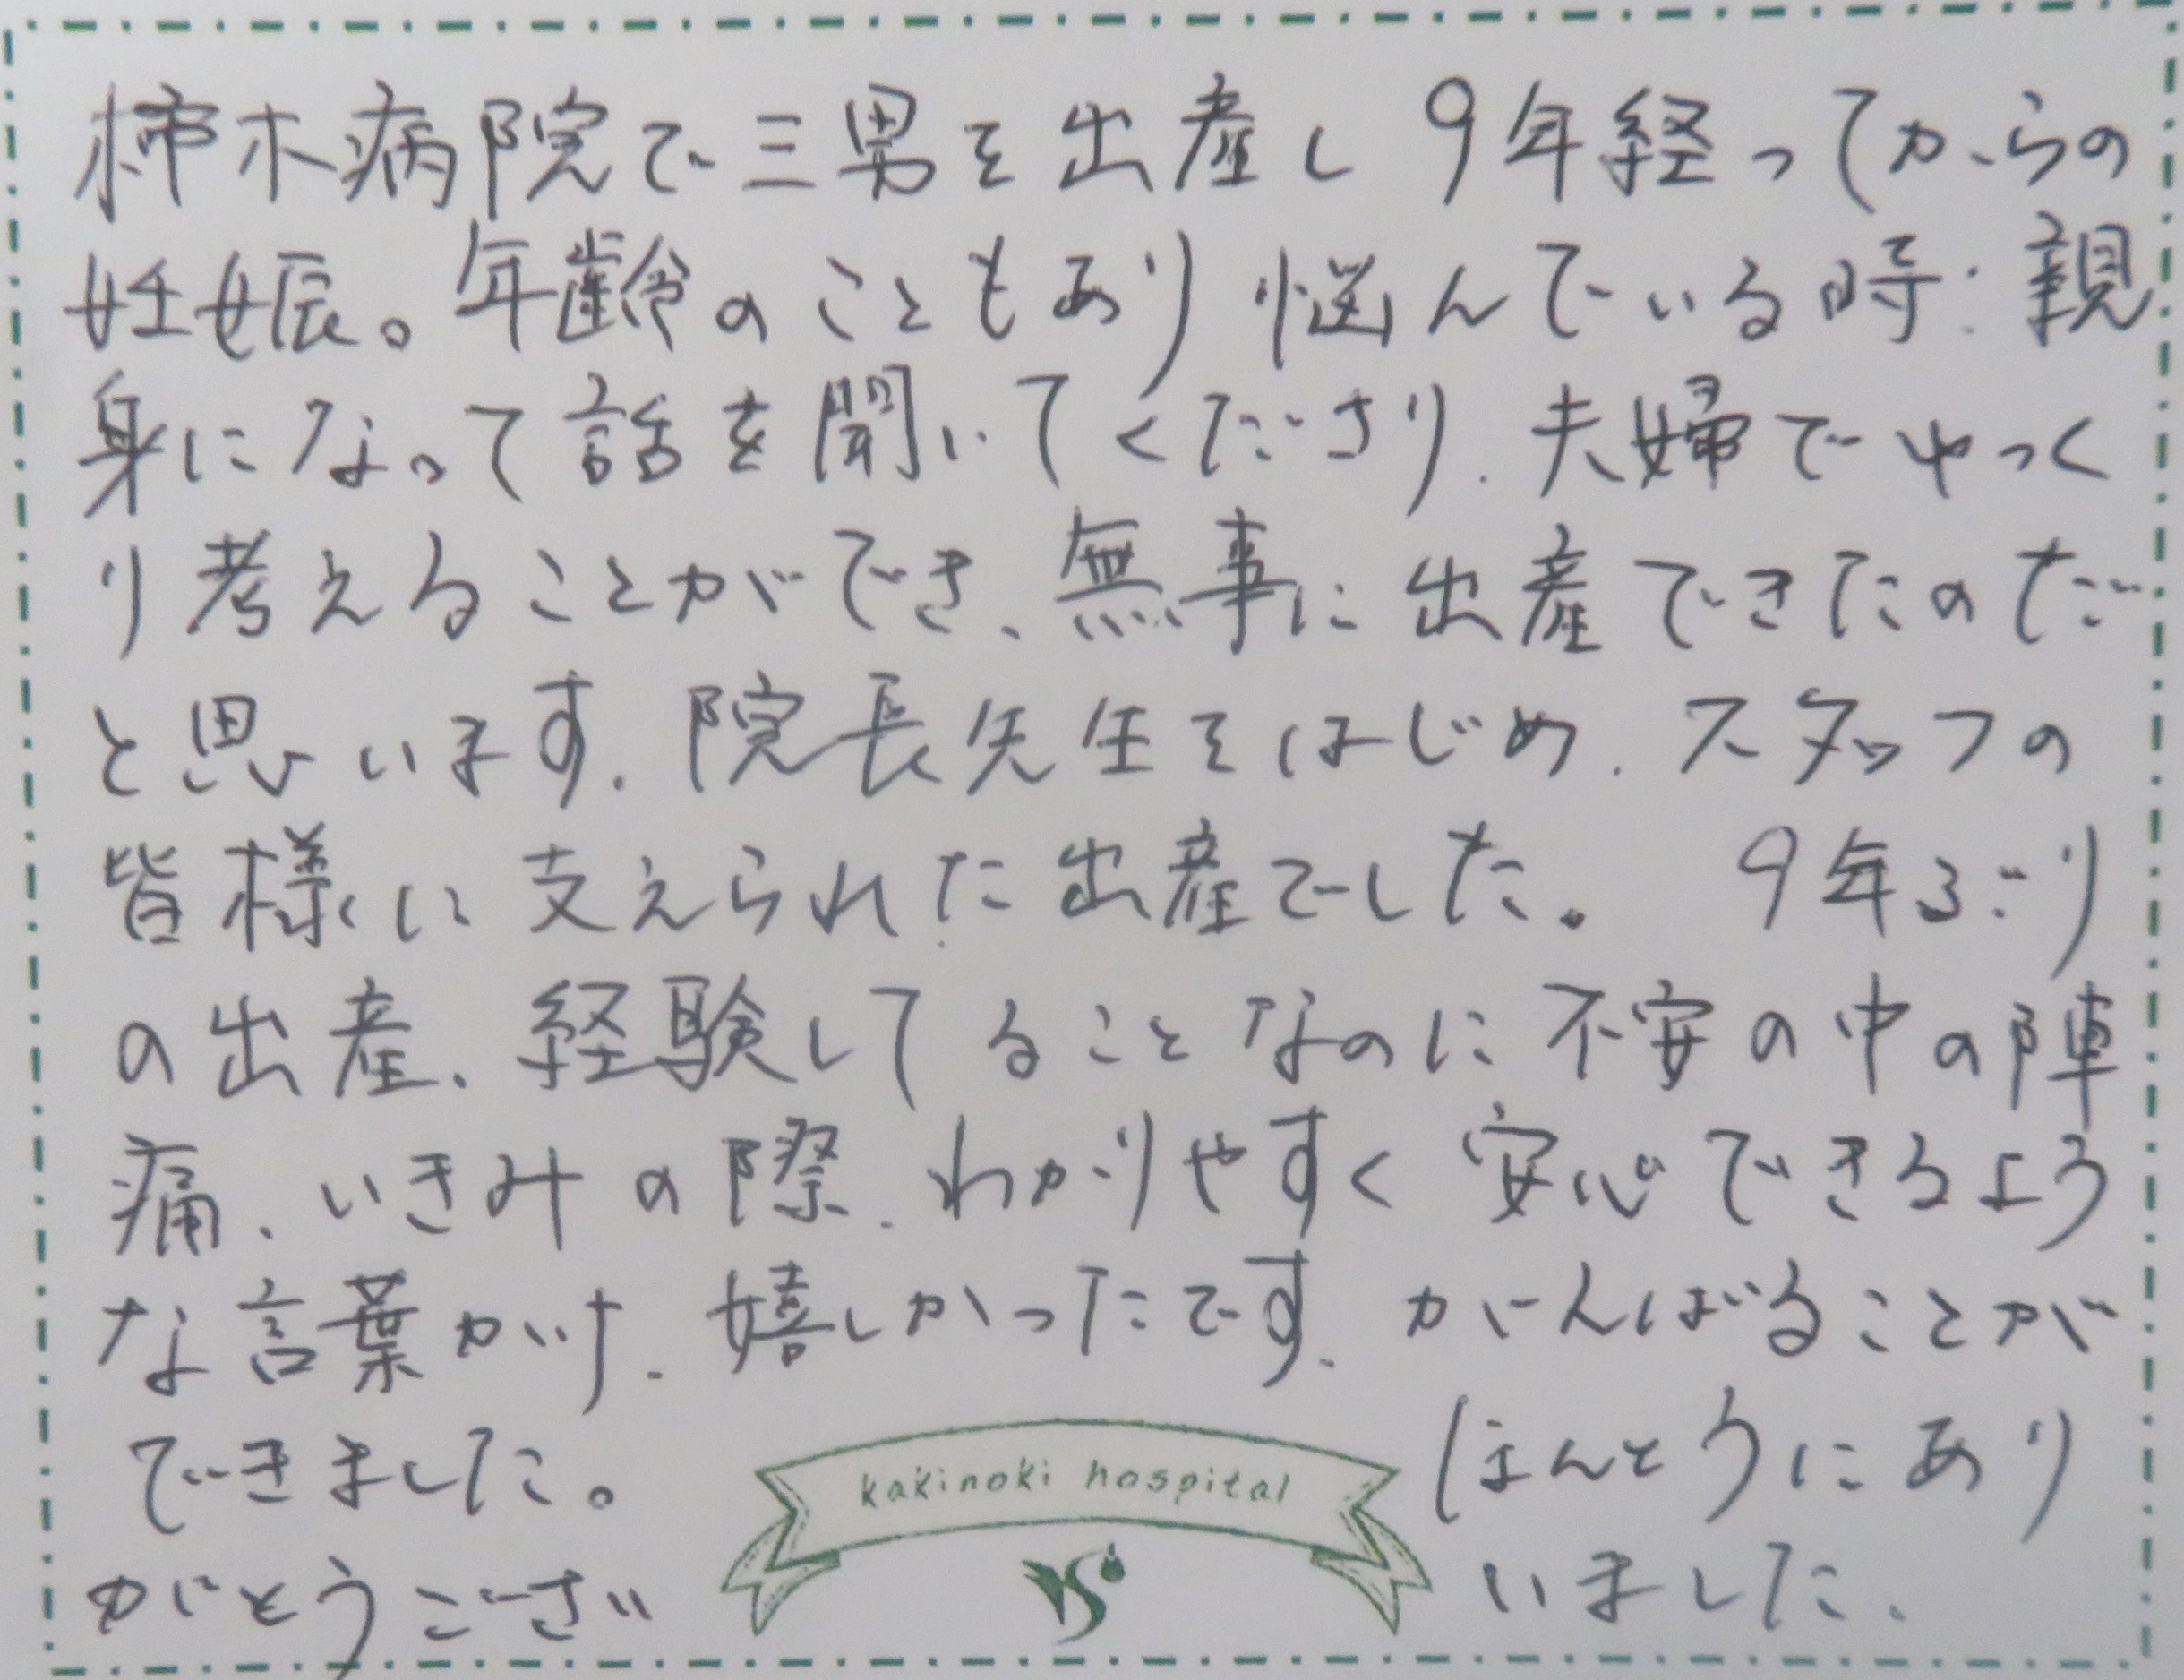 柿木病院で三男を出産し 9年経ってからの
妊娠。年齢のこともあり悩んでいる時、親
身になって話を聞いてくださり、夫婦でゆっく
り考えることができ、無事に出産できたのだ
と思います。院長先生をはじめ、スタッフの
皆様に支えられた出産でした。 9年ぶり
の出産、経験してることなのに不安の中の陣
痛、いきみの際、わかりやすく安心できるよう
な言葉がけ、嬉しかったです。がんばることが
できました。 ほんとうにあり
kakinoki hospital
がとうござい いました、